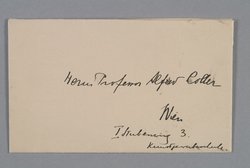 Herrn Professor Alfred Roller
Wien
I Stubenring 3
Kunstgewerbeschule